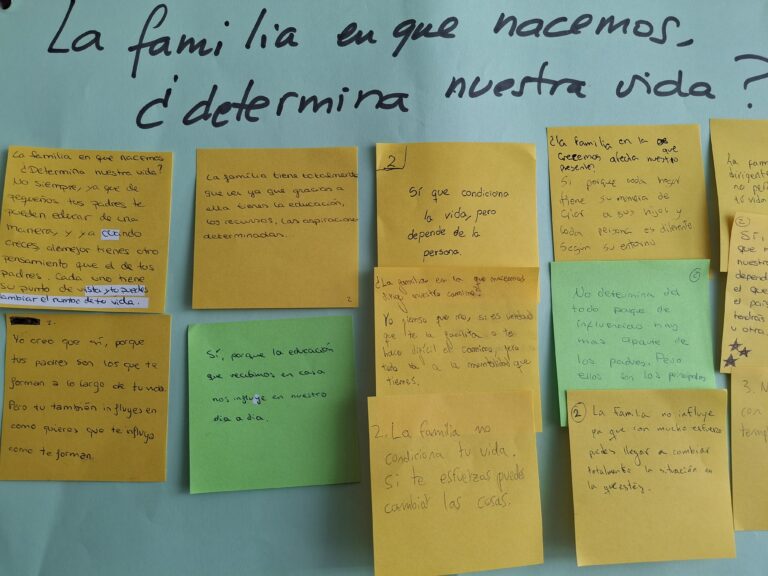 La familia en que nacemos,
¿determina nuestra vida?
La familia en que nacemos
¿Determina nuestra vida?
No siempre, ya que de
pequeños tus padres te
pueden educar de una
manera y ya cuando
creces alomejor tienes otro
pensamiento que el de tus
padres. Cada uno tiene
su punto de vista y tu puedes
cambiar el rumbo de tu vida.
La familia tiene totalmente
que ver ya que gracias a
ella tienes la educación,
los recursos, las aspiraciones
determinadas.
2
2
Sí que condiciona
la vida, pero
depende de la
persona.
¿La familia en la que
crecemos afecta nuestro
presente?
Si porque cada hogar
tiene su manera de
criar a sus hijos y
cada persona es diferente
segun su entorno
La fam
dirigent
no pe
tu vida
2.
Yo creo que sí, porque
tus padres son los que te
forman a lo largo de tu vida.
Pero tu también influyes en
como quieres que te influya
como te forman.
Sí, porque la educación
que recibimos en casa
nos influye en nuestro
dia a dia.
¿La familia en la que nacemos
nuestro camino?
Yo pienso que no, si es verdad
que te la facilita o te
hace dificil el camino, pero
todo va a la mentalidad que
tienes.
No determina del
todo porque de
influencias hay
mas aparte de
los padres. Pero
ellos son los principales
2
Sí,
que n
nuestra
depend
el que
el país
tendrás
u otra
2. La familia no
condiciona tu vida.
Si te esfuerzas puedes
cambiar las cosas.
2 La familia no influye
ya que con mucho esfuerzo
puedes llegar a cambiar
totalmente la situación en
la que estés.
3. N
con